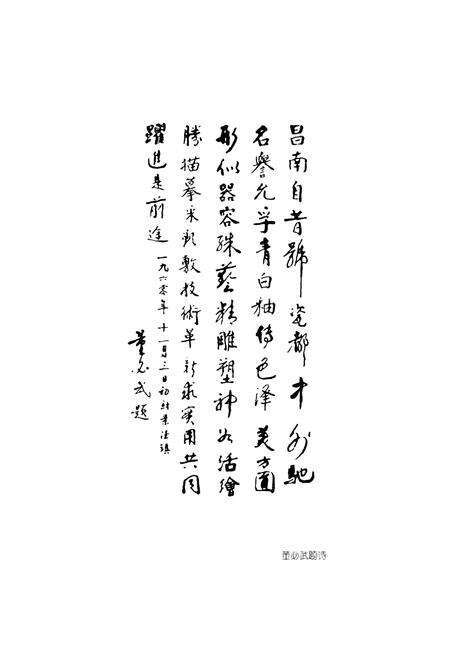 昌南自昔號瓷都中外馳
名譽允孚青白釉傳色澤美方圓
形似器容殊藝精雕塑神如活繪
勝描摹采欲敷技術革新求實用共同
躍進是前途 一九六零年十一月三日初景德鎮
董必武題
董必武题诗